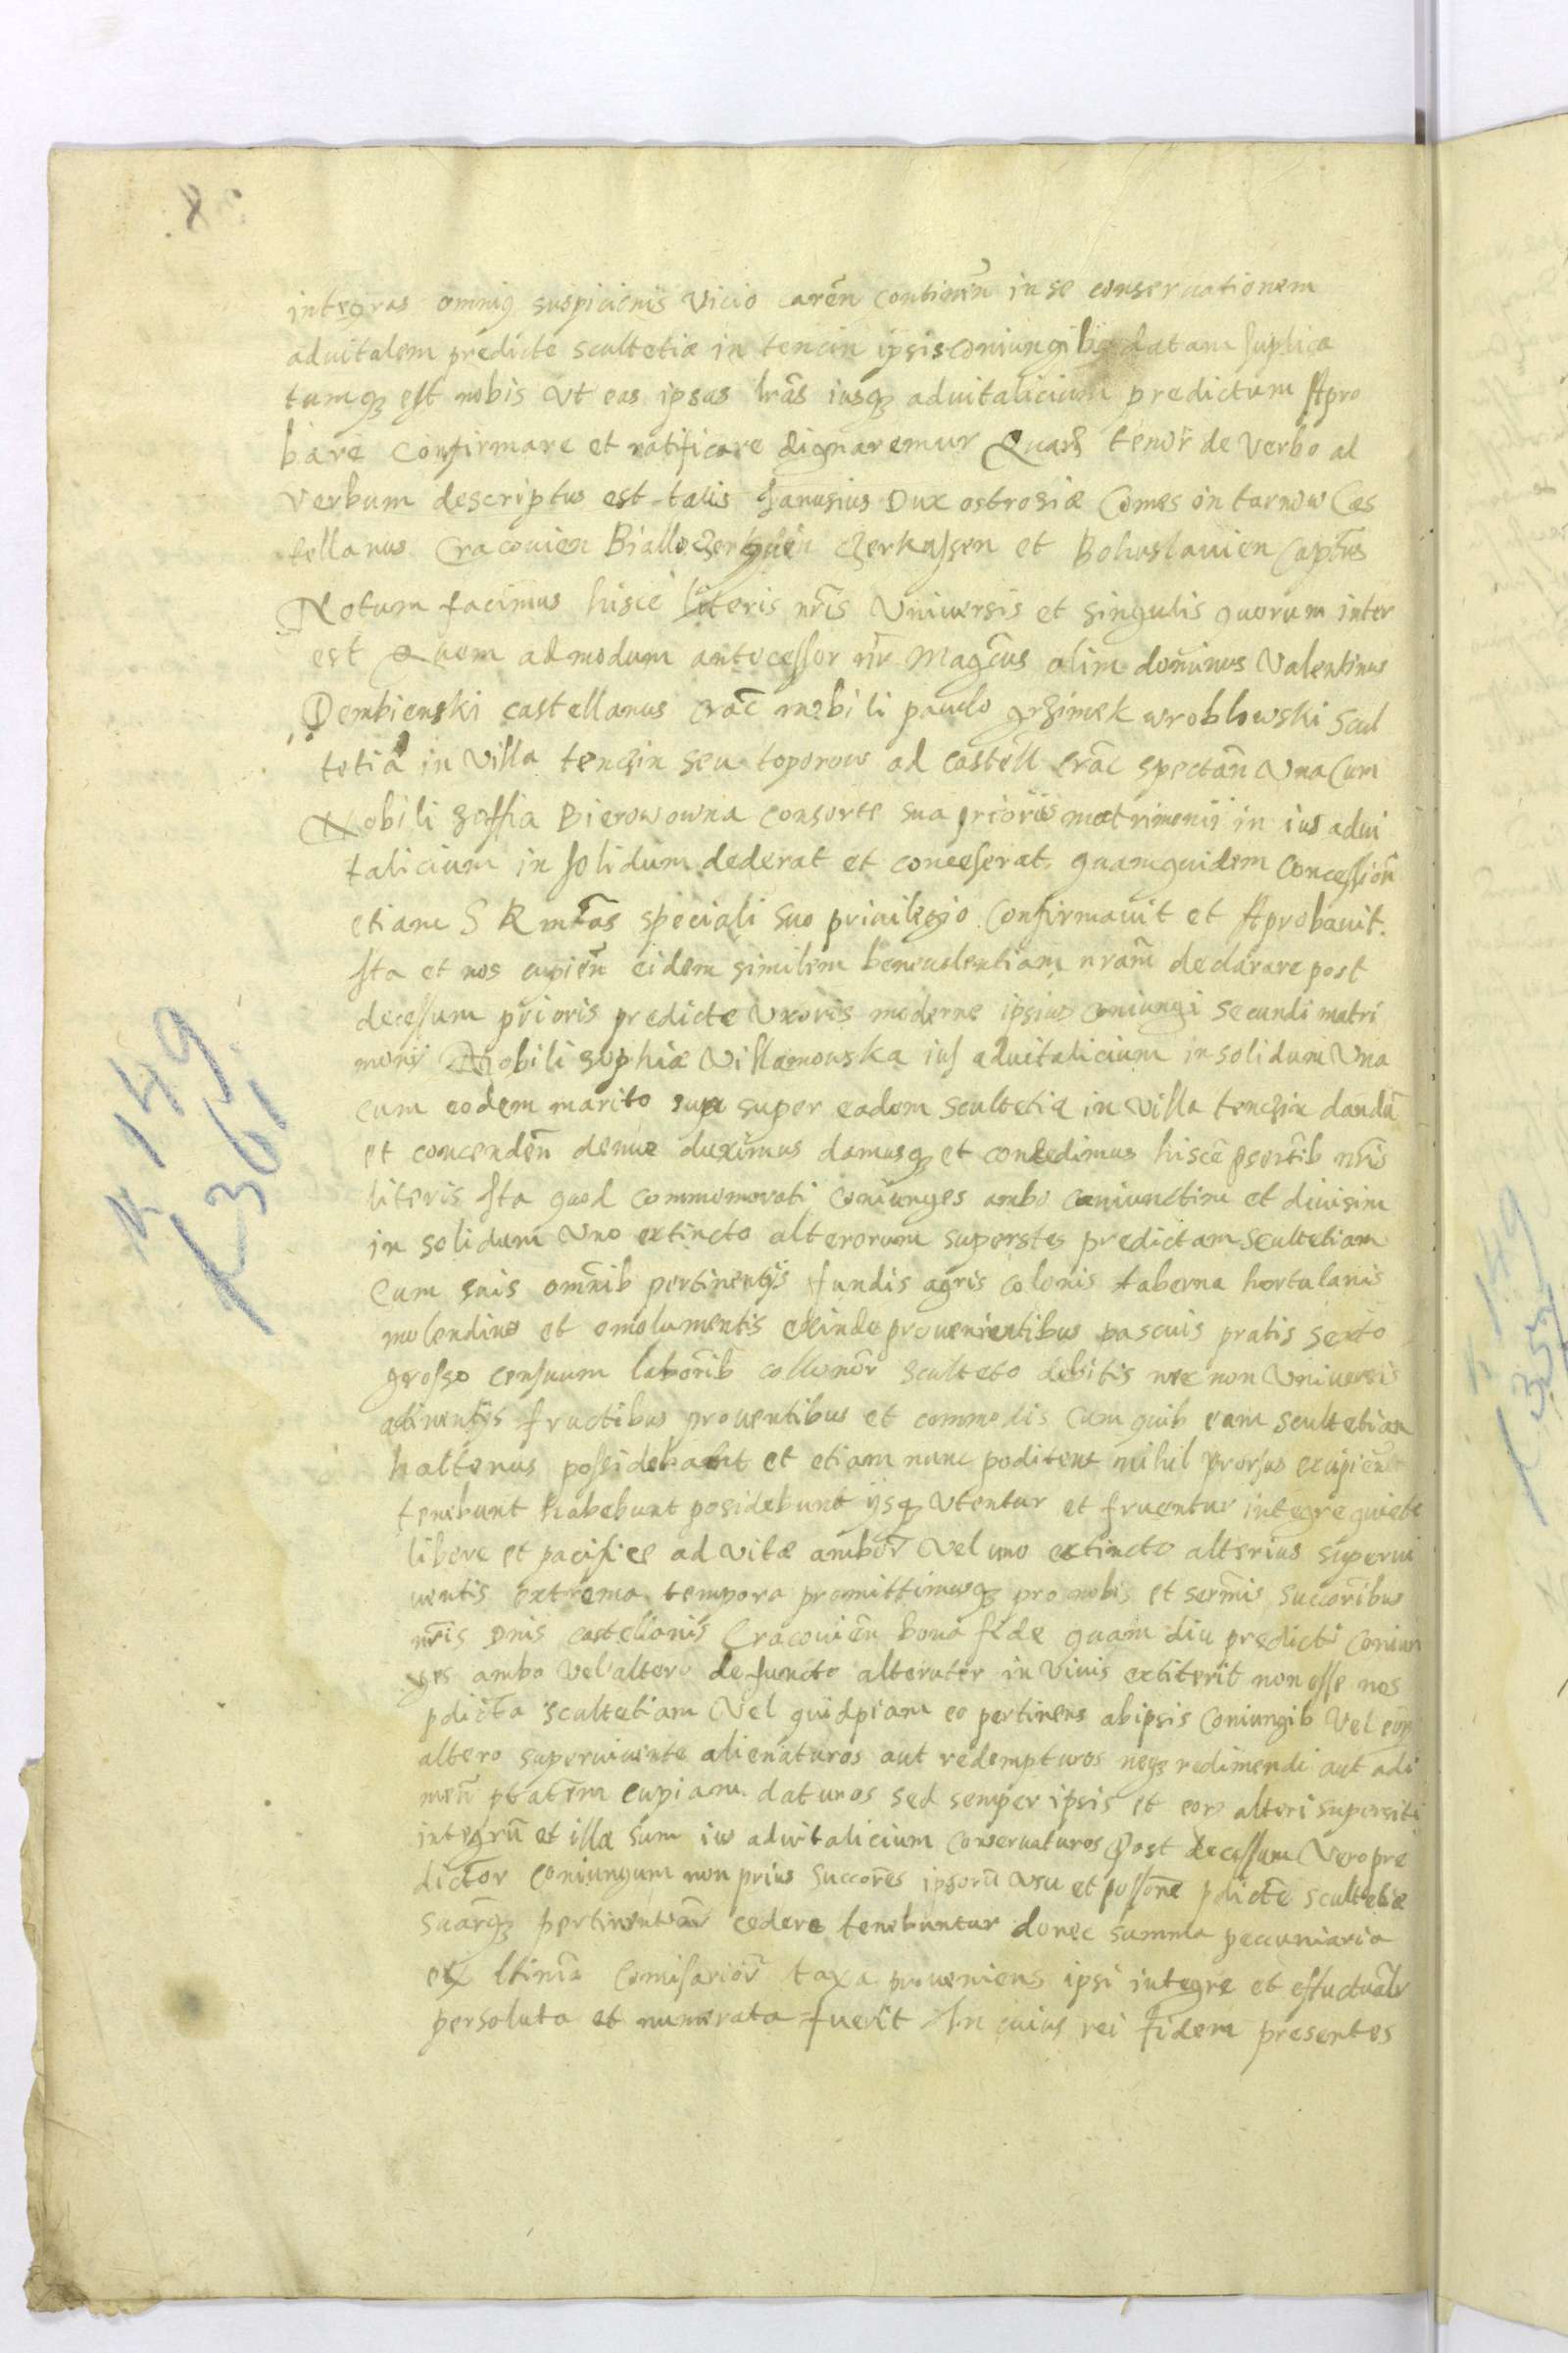 integras omniq suspicienis vicio caren̄ continen̄ in se conseruationem
aduitalem predicte scultetiæ in tencin ipsis coniungibq datam suplica
tumq est nobis Vt eas ipsas lrās iusq aduitalicium predictum Apro
bare Confirmare et ratificare dignaremur Quarȝ tenor de Verbo al
Verbum descriptus est talis Janusius Dux ostrosiæ Comes in tarnow Cas
tellanus Cracouien Biallo czerkuien Czerkassen et Bohuslauien Captūs
Notum facimus hisce literis nrīs Vniuersis et singulis quorum inter
est Quem admodum antecessor nr̄ Magcus olim dominus Valentinus
Dembienski castellanus Crac̄ nobili paulo grzimek wroblowski Scul
tetia in Villa tenczin seu toporow ad castell Crāc spectān Vna Cum
Nobili zoffia Bierowowna consorte sua prioris matrimonii in ius adui
talicium in solidum dederat et conceserat quamquidem Concessiōn
etiam S R mtas speciali suo priuilegio Confirmauit et Aprobauit.
Ita et nos cupien̄ eidem similem beneuolentiam nram̄ declarare post
decessum prioris predicte Vxoris moderne ipsius Coniungi secundi matri
monij Nobili sophiæ Villamowska ius aduitalicium in solidum Vna
cum eodem marito suo super eadem scultetia in Villa tenczin dandū
et concenden̄ denuo duximus damusq et concedimus hisce psentib nrīs
literis Ita quod commemorati coniunges ambo coniunctim et diuisim
in solidum Vno extincto alterorum superstes predictam scultetiam
Cum suis omnib pertinentijs fundis agris colonis taberna hortulanis
molendino et emolumentis exinde prouenientibus pascuis pratis sexto
grosso censuum laborib collonor̄ Sculteto debitis nec non Vniuersis
atinentijs fructibus prouentibus et commodis Cum quib eam scultetiam
haltenus possidebant et etiam nunc poditent nihil prorsus excipien̄
tenebunt habebunt posidebunt ijsq Vtentur et fruentur integre quiete
libere et pacifice ad vitæ ambor̄ Vel uno extincto alterius superui
uentis extrema tempora promittimusq pro nobis et sermis succoribus
nrīs Dnis castelianis Cracouien̄ bona fide quam diu predicti coniun
ges ambo Vel altero defuncto alteruter in Viuis extiterit non esse nos
pdicta scultetiam Vel quidpiam eo pertinens abipsis Coniungib Vel eor
altero superuiuente alienaturos aut redempturos neqȝ redimendi aut adi
men̄ ptatem cupiam daturos sed semper ipsis et eor alteri supersiti
integrū et illæ sum ius aduitalicium conseruaturos Post decessum Vero pre
dictor coniungum non prius succores ipsorū Vsu et possone pdicte scultetiæ
suarq pertinentiar cedere tenebuntur donec summa pecuniaria
ex ltima Comisarior taxa proueniens ipsi integre et effuctualr
persoluta et numerata fuerit In cuius rei fidem presentes
N 149
K 361
N 149
K 355